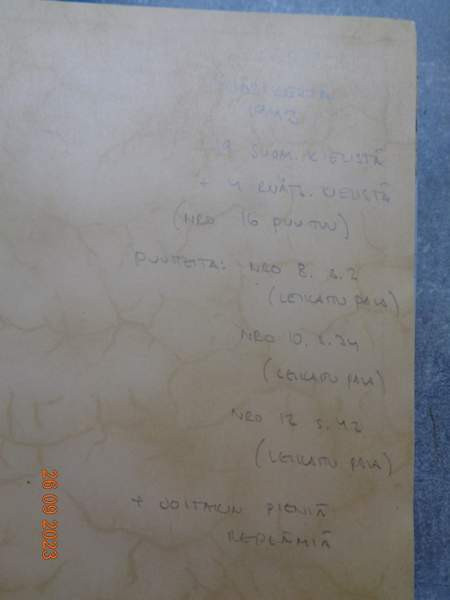 VUOSIKERTA
1942
19 SUOM. KIELISTÄ
+ 4 RUÅTS. KIELISTÄ
(NRO 16 PUUTUU)
PUUTTEITA: NRO 8. s. 2
(LEIKATTU PALA)
NRO 10. s. 24
(LEIKATTU PALA)
NRO 12 s. 42
(LEIKATTU PALA)
+ JOITAKIN PIENIÄ
REPEÄMIÄ
26 09 2023